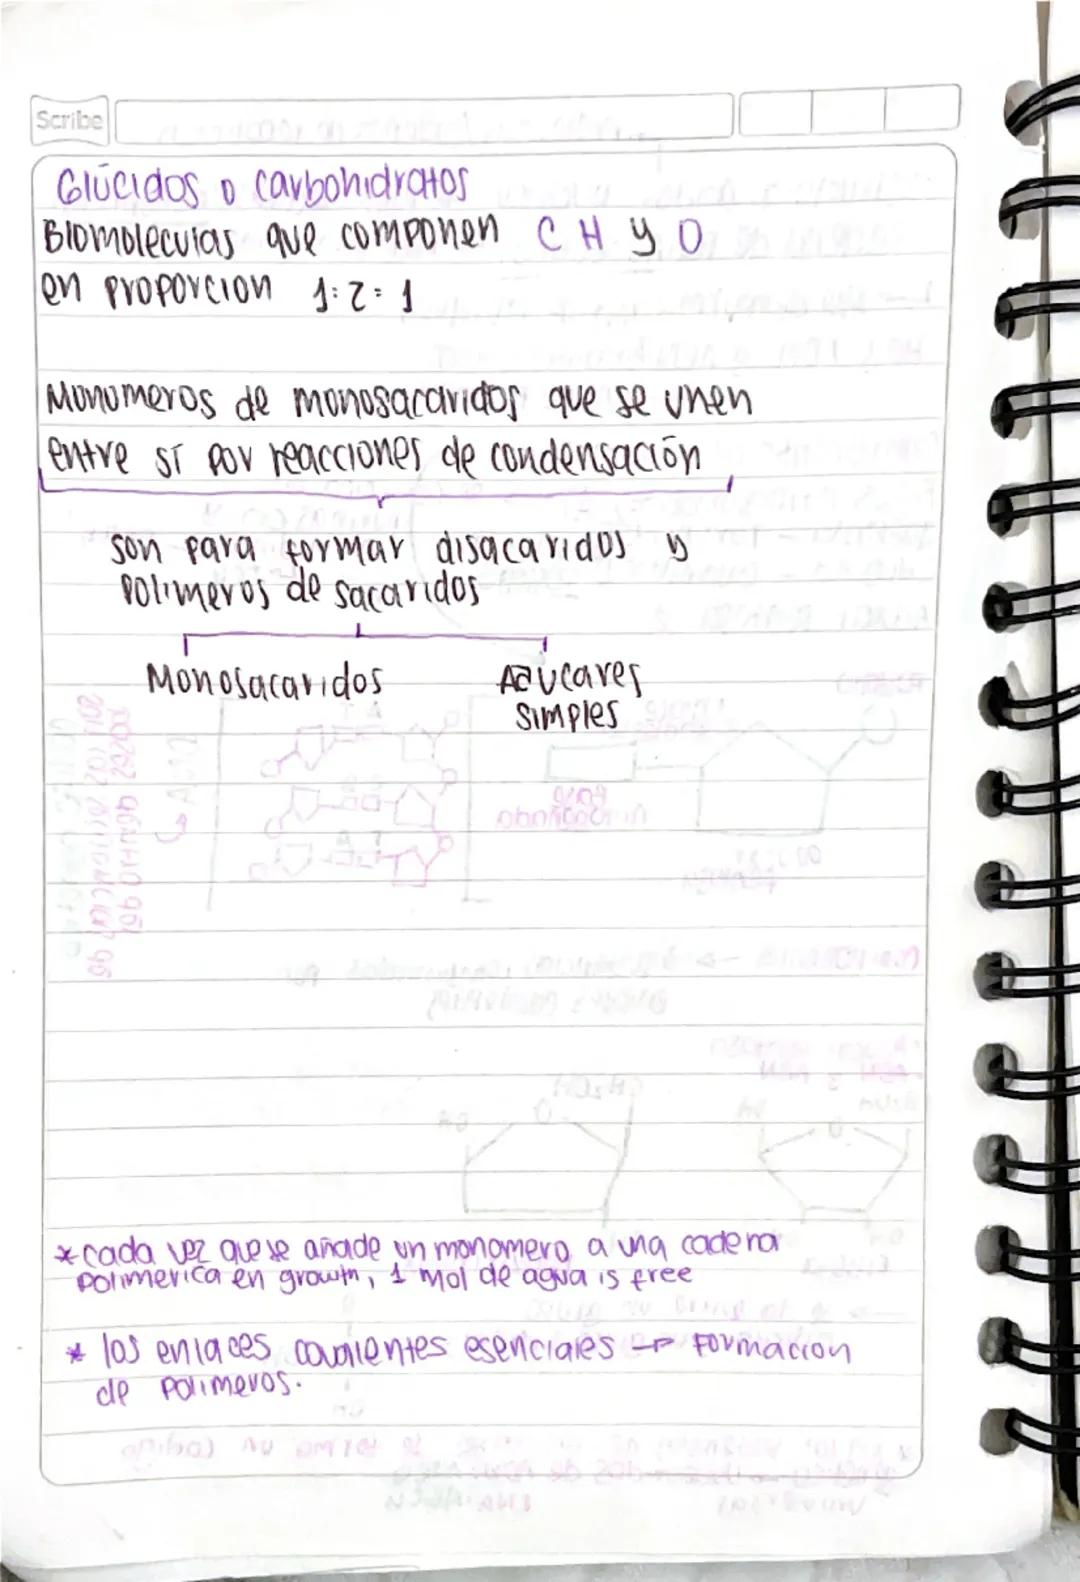 Scribe
Glúcidos o carbohidratos
Biomoleculas que componen C H y O
en proporcion 1:2:1
Monomeros de monosacaridos que se unen
entre sí por reacciones de condensación
son para formar disacaridos y
polimeros de sacaridos
Monosacaridos
Azucares
simples
* cada vez que se añade un monomero a una cadena
polimerica en growth, 1 mol de agua is free
* los enlaces covalentes esenciales → Formacion
de polimeros.